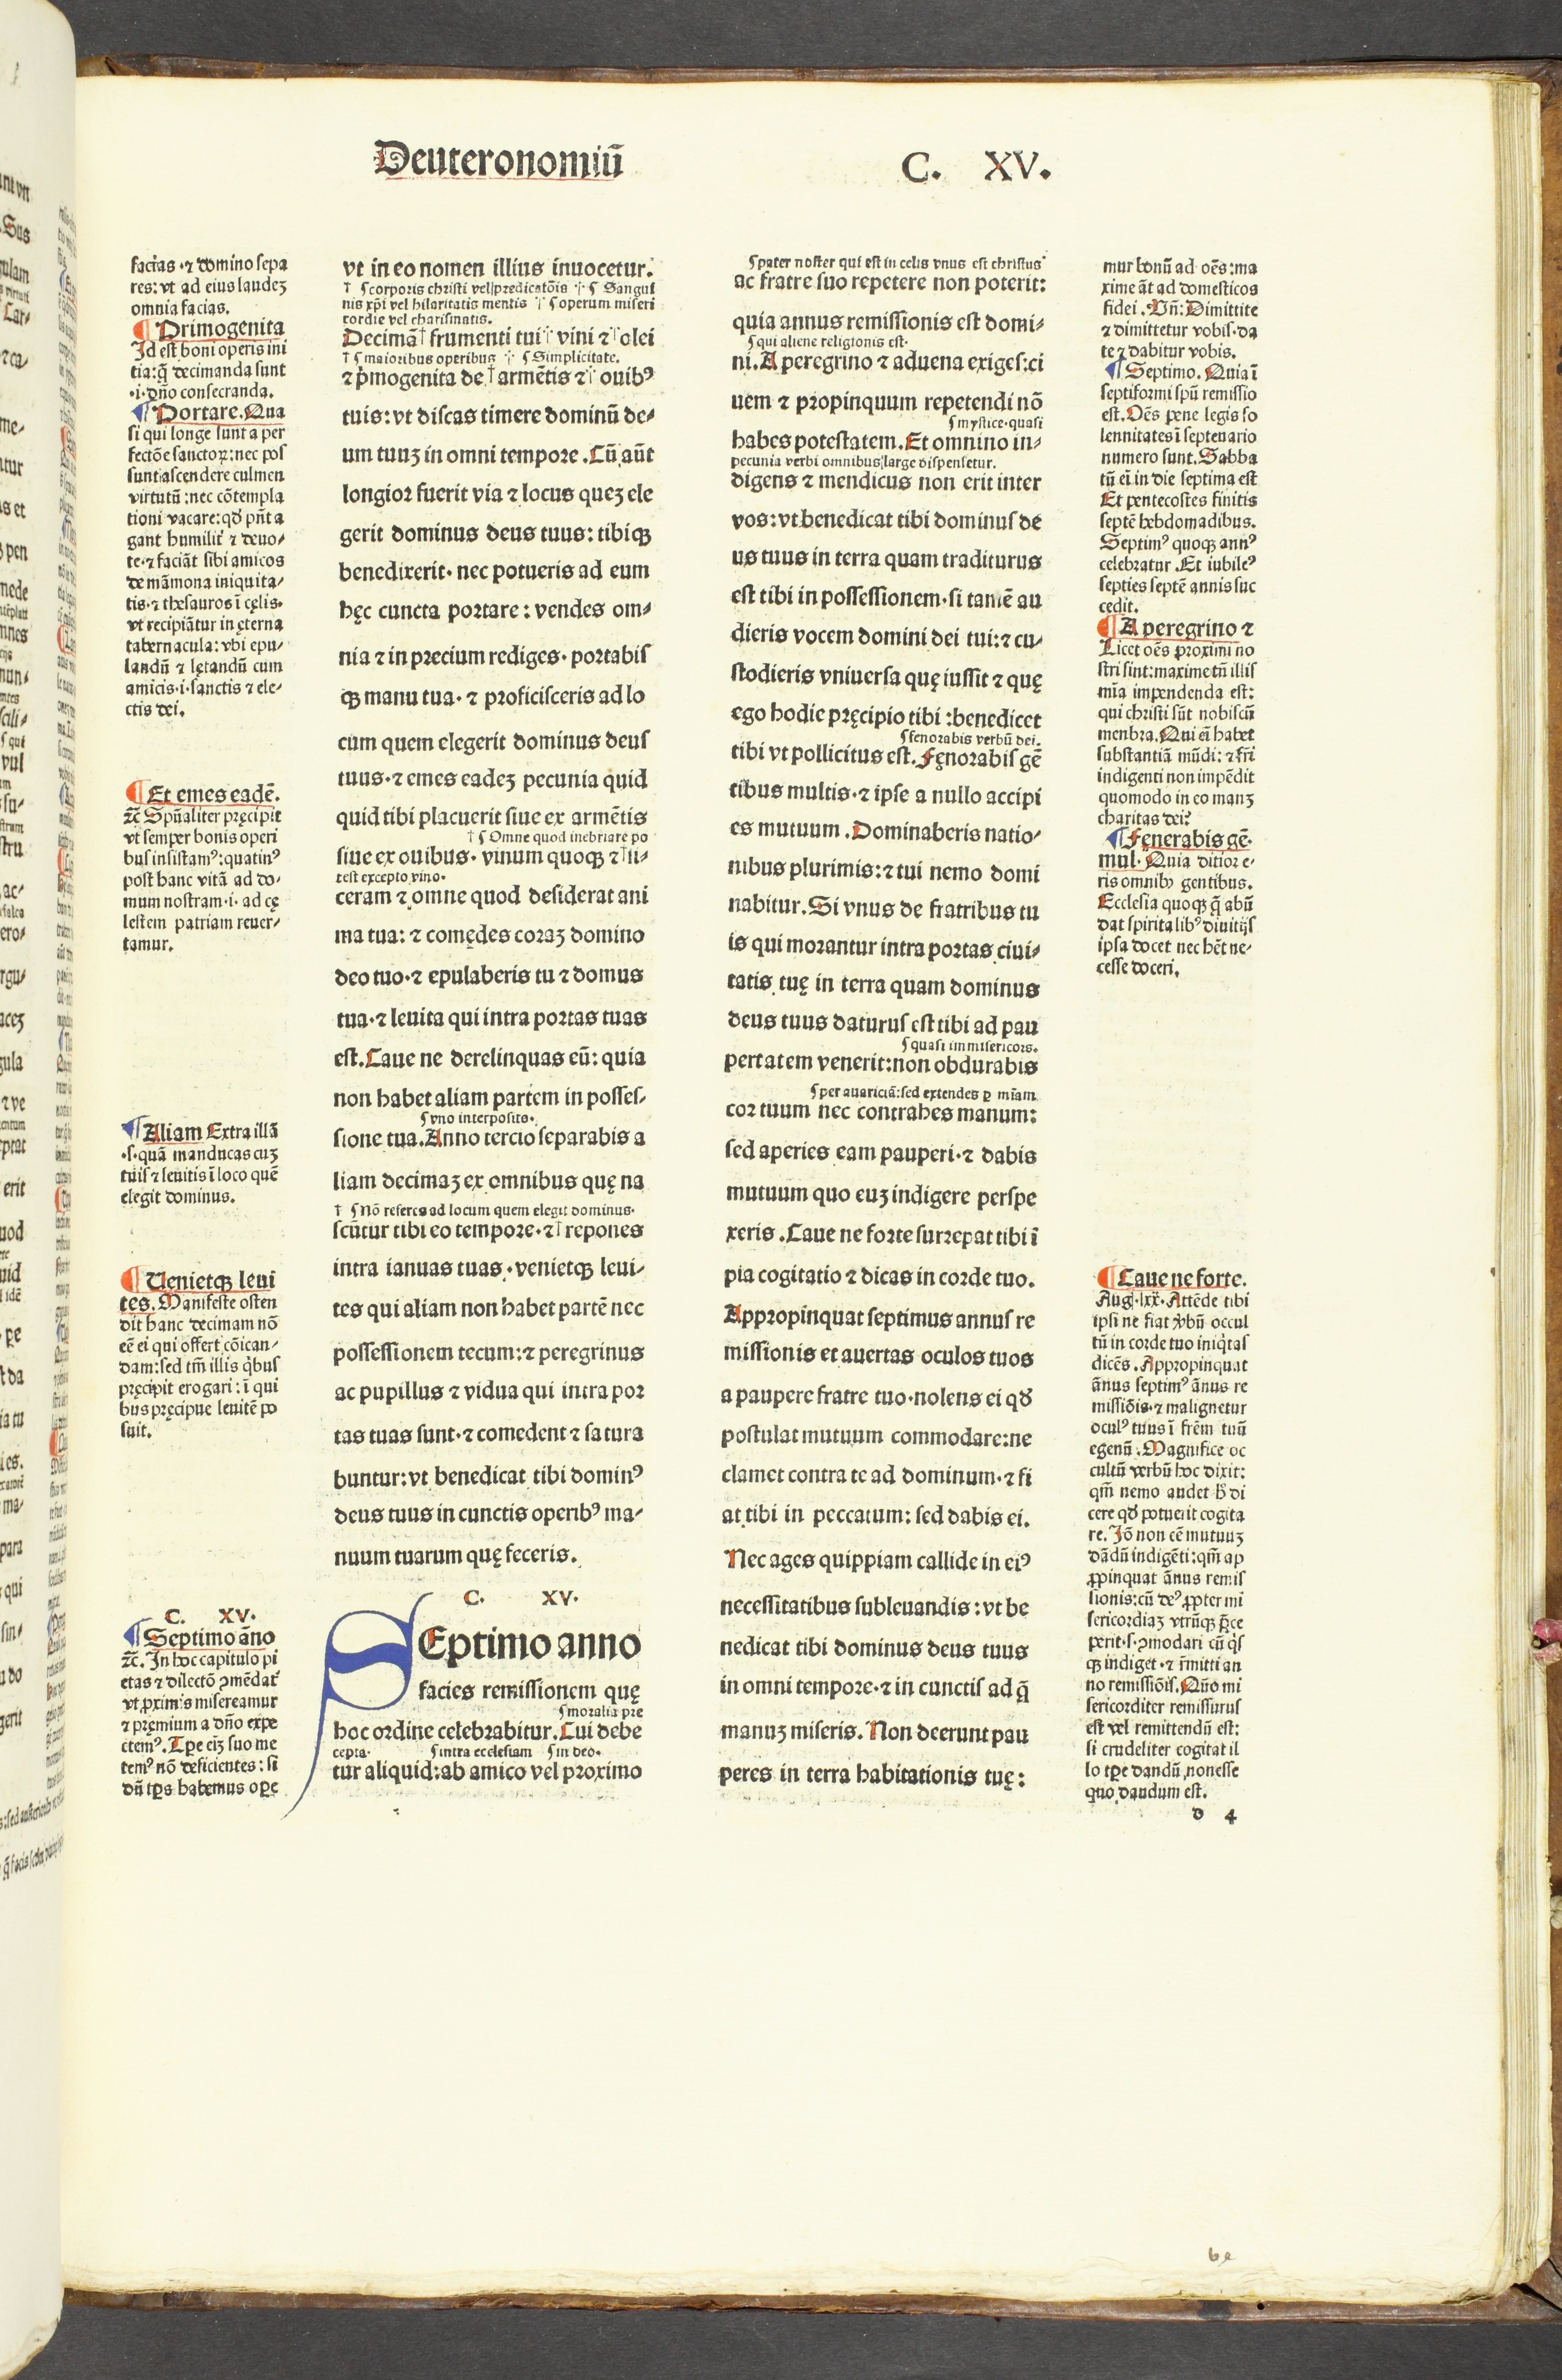 Deuteronomiũ
C. XV.
facias .⁊ domino sepa
res: vt ad eius laudeʒ
omnia facias.
¶ Primogenita
Id est boni operis ini
tia: q̃ decimanda sunt
.i. dño consecranda.
¶ Portare. Qua
si qui longe sunt a per
fectõe sanctoꝝ: nec pos
sunt ascendere culmen
virtutũ: nec cõtempla
tioni vacare: qđ pñt a
gant humilit̃ ⁊ deuo-
te .⁊ faciãt sibi amicos
de mãmona iniquita-
tis .⁊ thesauros ĩ cęlis.
vt recipiãtur in ęterna
tabernacula: vbi epu-
landũ ⁊ lętandũ cum
amicis .i. sanctis ⁊ ele-
ctis dei.
¶ Et emes eadẽ.
⁊c̃ Spũaliter pręcipit
vt semper bonis operi
bus insistamꝰ: quatinꝰ
post hanc vitã ad do-
mum nostram .i. ad cę
lestem patriam reuer-
tamur.
¶ Aliam Extra illã
.s. quã manducas cuʒ
tuis ⁊ leuitis ĩ loco quẽ
elegit dominus.
¶ Uenietqꝫ leui
tes. Manifeste osten
dit hanc decimam nõ
eẽ ei qui offert cõican-
dam: sed tm̃ illis q̇bus
pręcipit erogari: ĩ qui
bus pręcipue leuitẽ po
suit.
C. XV.
¶ Septimo ãno
⁊c̃. In hoc capitulo pi
etas ⁊ dilectõ ꝯmẽdat̃
vt proximis misereamur
⁊ pręmium a dño expe
ctemꝰ. Tꝑe eiʒ suo me
temꝰ nõ deficientes: si
dũ tp̃s habemus oꝑe
vt in eo nomen illius inuocetur.
† ¶ corporis christi vel predicatõis ⁘ ¶ Sangui
nis xp̃i vel hilaritatis mentis † ¶ operum miseri
cordie vel charismatis.
Decimã † frumenti tui † vini ⁊ † olei
† ¶ maioribus operibus ⁘ ¶ Simplicitate.
⁊ p̃mogenita de † armẽtis ⁊ † ouibꝰ
tuis: vt discas timere dominũ de-
um tuuʒ in omni tempore. Cũ aũt
longior fuerit via ⁊ locus queʒ ele
gerit dominus deus tuus: tibiqꝫ
benedixerit. nec potueris ad eum
hęc cuncta portare: vendes om-
nia ⁊ in precium rediges. portabis
qꝫ manu tua. ⁊ proficisceris ad lo
cum quem elegerit dominus deus
tuus .⁊ emes eadeʒ pecunia quid
quid tibi placuerit siue ex armẽtis
† ¶ Omne quod inebriare po
siue ex ouibus. vinum quoqꝫ ⁊ † si-
test excepto vino.
ceram ⁊ omne quod desiderat ani
ma tua: ⁊ comędes coraʒ domino
deo tuo .⁊ epulaberis tu ⁊ domus
tua .⁊ leuita qui intra portas tuas
est. Caue ne derelinquas eũ: quia
non habet aliam partem in posses-
¶ vno interposito.
sione tua. Anno tercio separabis a
liam decimaʒ ex omnibus quę na
† ¶ Nõ referes ad locum quem elegit dominus.
scũtur tibi eo tempore .⁊ † repones
intra ianuas tuas. venietqꝫ leui-
tes qui aliam non habet partẽ nec
possessionem tecum: ⁊ peregrinus
ac pupillus ⁊ vidua qui intra por
tas tuas sunt .⁊ comedent ⁊ satura
buntur: vt benedicat tibi dominꝰ
deus tuus in cunctis operibꝰ ma-
nuum tuarum quę feceris.
C. XV.
SEptimo anno
facies remissionem quę
¶ moralia pre
hoc ordine celebrabitur. Cui debe
cepta. ¶ intra ecclesiam ¶ in deo.
tur aliquid: ab amico vel proximo
¶ pater noster qui est in celis vnus est christus
ac fratre suo repetere non poterit:
quia annus remissionis est domi-
¶ qui aliene religionis est.
ni. A peregrino ⁊ aduena exiges: ci
uem ⁊ propinquum repetendi nõ
¶ mystice. quasi
habes potestatem. Et omnino in-
pecunia verbi omnibus large dispensetur.
digens ⁊ mendicus non erit inter
vos: vt benedicat tibi dominus de
us tuus in terra quam traditurus
est tibi in possessionem. si tamẽ au
dieris vocem domini dei tui: ⁊ cu-
stodieris vniuersa quę iussit ⁊ quę
ego hodie pręcipio tibi: benedicet
¶ fenorabis verbũ dei.
tibi vt pollicitus est. Fęnorabis gẽ
tibus multis .⁊ ipse a nullo accipi
es mutuum. Dominaberis natio-
nibus plurimis: ⁊ tui nemo domi
nabitur. Si vnus de fratribus tu
is qui morantur intra portas ciui-
tatis tuę in terra quam dominus
deus tuus daturus est tibi ad pau
¶ quasi immisericors.
pertatem venerit: non obdurabis
¶ per auariciã: sed extendes ꝑ miãm
cor tuum nec contrahes manum:
sed aperies eam pauperi .⁊ dabis
mutuum quo euʒ indigere perspe
xeris. Caue ne forte surrepat tibi ĩ
pia cogitatio ⁊ dicas in corde tuo.
Appropinquat septimus annus re
missionis et auertas oculos tuos
a paupere fratre tuo. nolens ei qđ
postulat mutuum commodare: ne
clamet contra te ad dominum .⁊ fi
at tibi in peccatum: sed dabis ei.
Nec ages quippiam callide in eiꝰ
necessitatibus subleuandis: vt be
nedicat tibi dominus deus tuus
in omni tempore .⁊ in cunctis ad q̃
manuʒ miseris. Non deerunt pau
peres in terra habitationis tuę:
mur bonũ ad oẽs: ma
xime ãt ad domesticos
fidei. Vñ: Dimittite
⁊ dimittetur vobis. da
te ⁊ dabitur vobis.
¶ Septimo. Quia ĩ
septiformi spũ remissio
est. Oẽs pene legis so
lennitates ĩ septenario
numero sunt. Sabba
tũ eĩ in die septima est
Et pentecostes finitis
septẽ hebdomadibus.
Septimꝰ quoqꝫ annꝰ
celebratur. Et iubileꝰ
septies septẽ annis suc
cedit.
¶ A peregrino ⁊
Licet oẽs proximi no
stri sint: maxime tñ illis
mĩa impendenda est:
qui christi sũt nobiscũ
menbra. Qui eĩ habet
substantiã mũdi: ⁊ fr̃i
indigenti non impẽdit
quomodo in eo manʒ
charitas dei?
¶ Fenerabis gẽ.
mul. Quia ditior e-
ris omnibꝰ gentibus.
Ecclesia quoqꝫ q̃ abũ
dat spiritalibꝰ diuitijs
ipsa docet nec hẽt ne-
cesse doceri.
¶ Caue ne forte.
Aug. lxx. Attẽde tibi
ipsi ne fiat ṽbũ occul
tũ in corde tuo iniq̇tas
dicẽs. Appropinquat
ãnus septimꝰ ãnus re
missiõis .⁊ malignetur
oculꝰ tuus ĩ frẽm tuũ
egenũ. Magnifice oc
cultũ verbũ hoc dixit:
qm̃ nemo audet h̃ di
cere qđ potuerit cogita
re. Iõ non eẽ mutuuʒ
dãdũ indigẽti: qm̃ ap
ꝓpinquat ãnus remis
sionis: cũ deꝰ ꝓpter mi
sericordiaʒ vtrũqꝫ p̃ce
perit .s. ꝯmodari cũ q̇s
qꝫ indiget .⁊ r̃mitti an
no remissiõis. Qũo mi
sericorditer remissurus
est vel remittendũ est:
si crudeliter cogitat il
lo tꝑe dandũ non esse
quo dandum est.
d 4
be